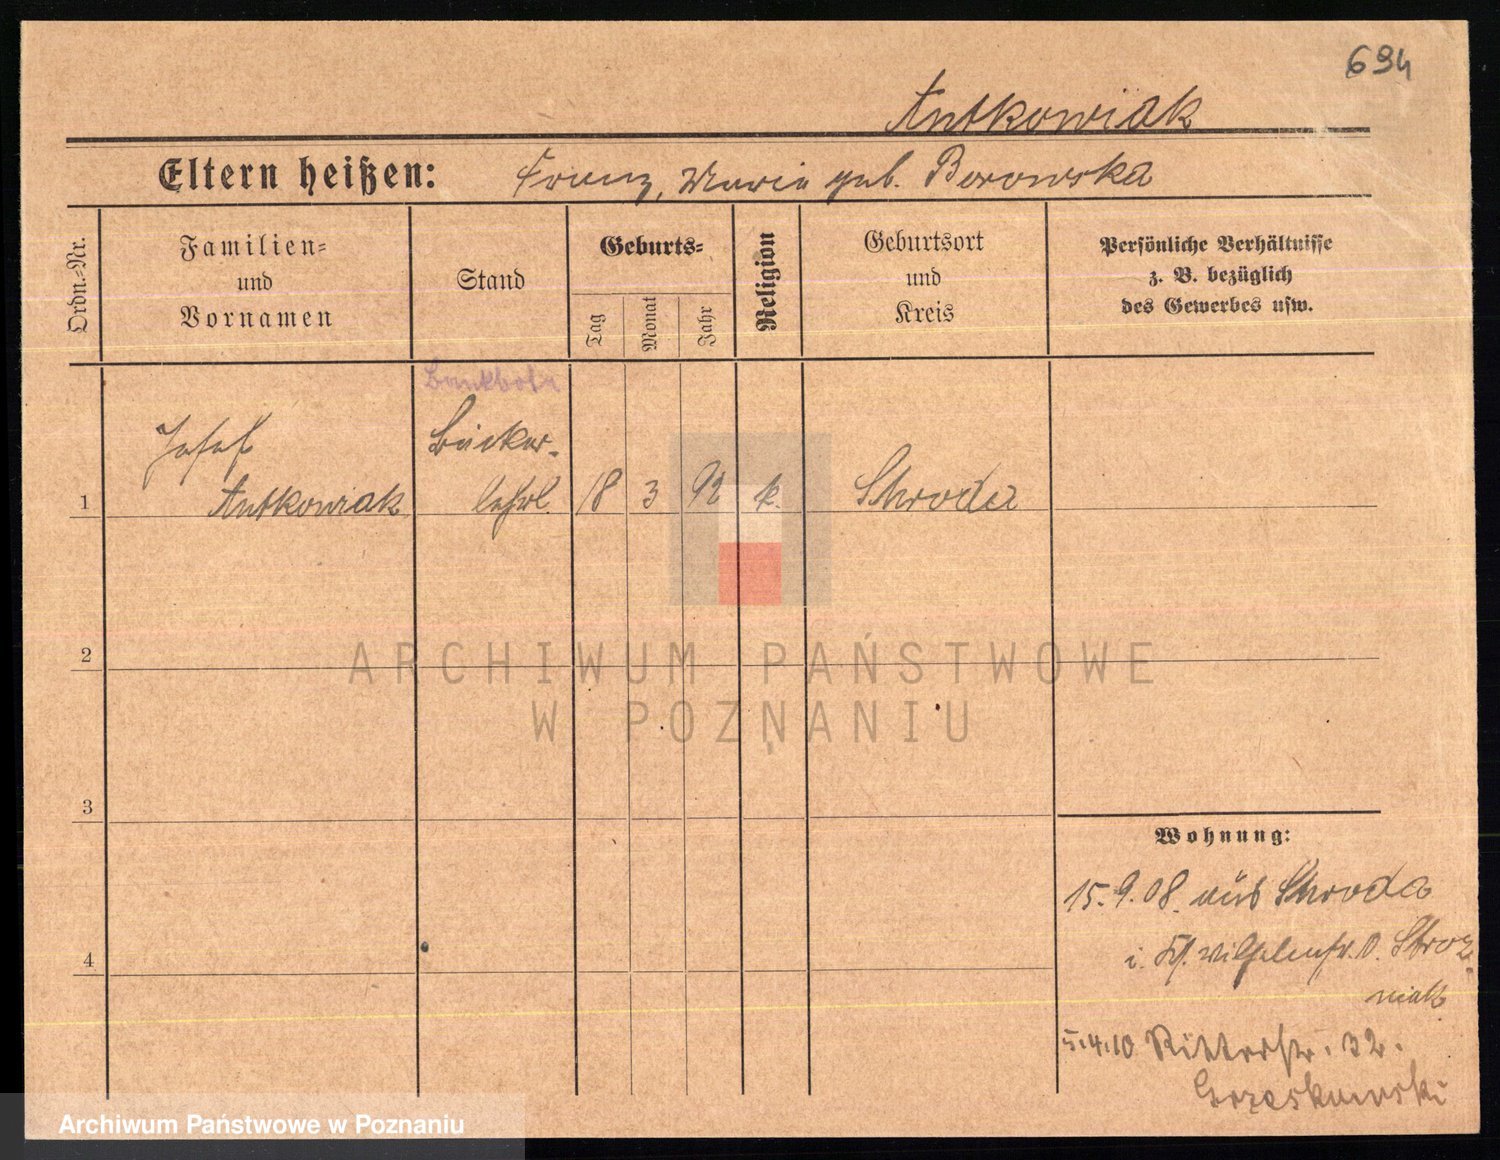 694
Antkowiak
Eltern heißen: Franz, Maria geb. Borowska
Ordn.-Nr.
Familien-
und
Vornamen
Stand
Geburts-
Tag
Monat
Jahr
Religion
Geburtsort
und
Kreis
Persönliche Verhältnisse
z. B. bezüglich
des Gewerbes usw.
Bankbote
Josef
Bäcker-
1 Antkowiak lehrl. 18 3 92 k. Schroda
2
ARCHIWUM PAŃSTWOWE
W POZNANIU
3
Wohnung:
15.9.08. aus Schroda
4
i. Kl. Wilhelmstr. 0. Stroz
niak
5.4.10 Ritterstr. 32.
Grzeskowski
Archiwum Państwowe w Poznaniu